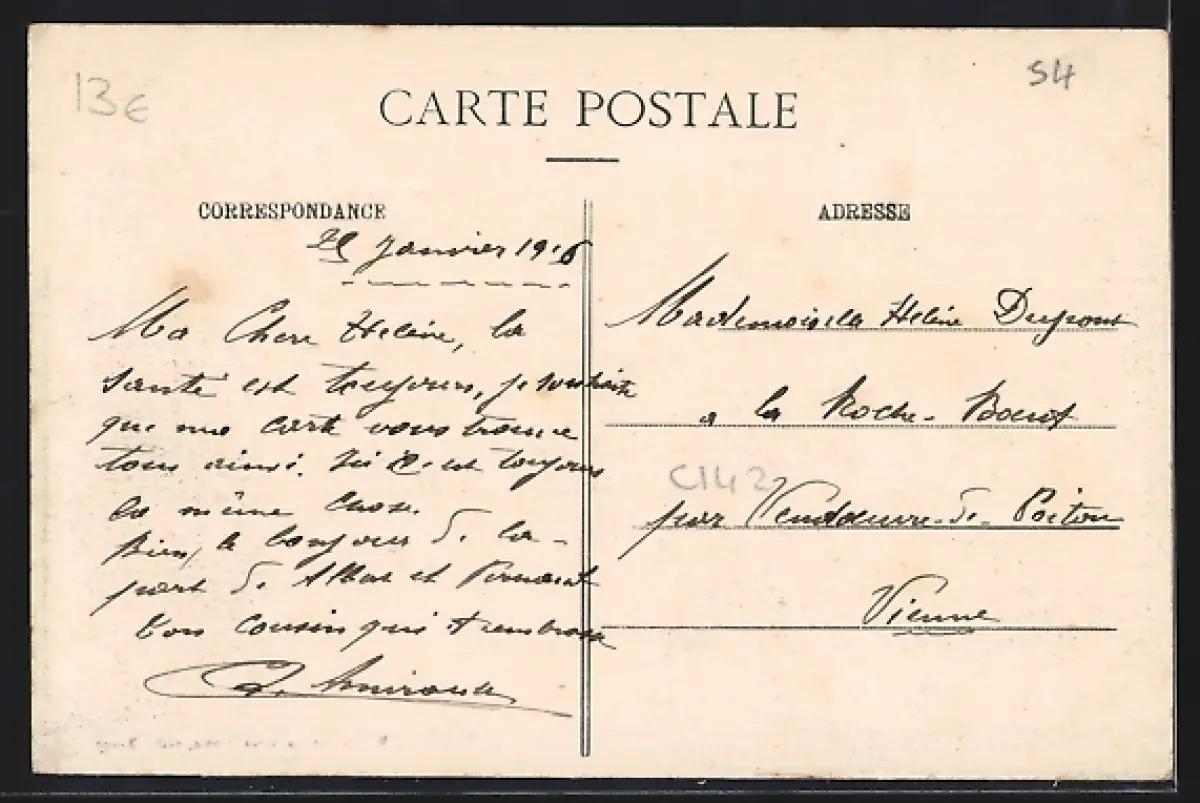 13€
54
CARTE POSTALE
CORRESPONDANCE
janvier 1916
Ma Chere Helène, la
santé est toujours, je souhaite
que ma carte vous trouve
tous ainsi. Ici c'est toujours
la même chose.
Bien le bonjour de la
part de et
ton cousin qui t'embrasse
ADRESSE
Mademoiselle Helène Dupont
a la Roche-Boeuf
C142
par Vendeuvre-de-Poitou
Vienne